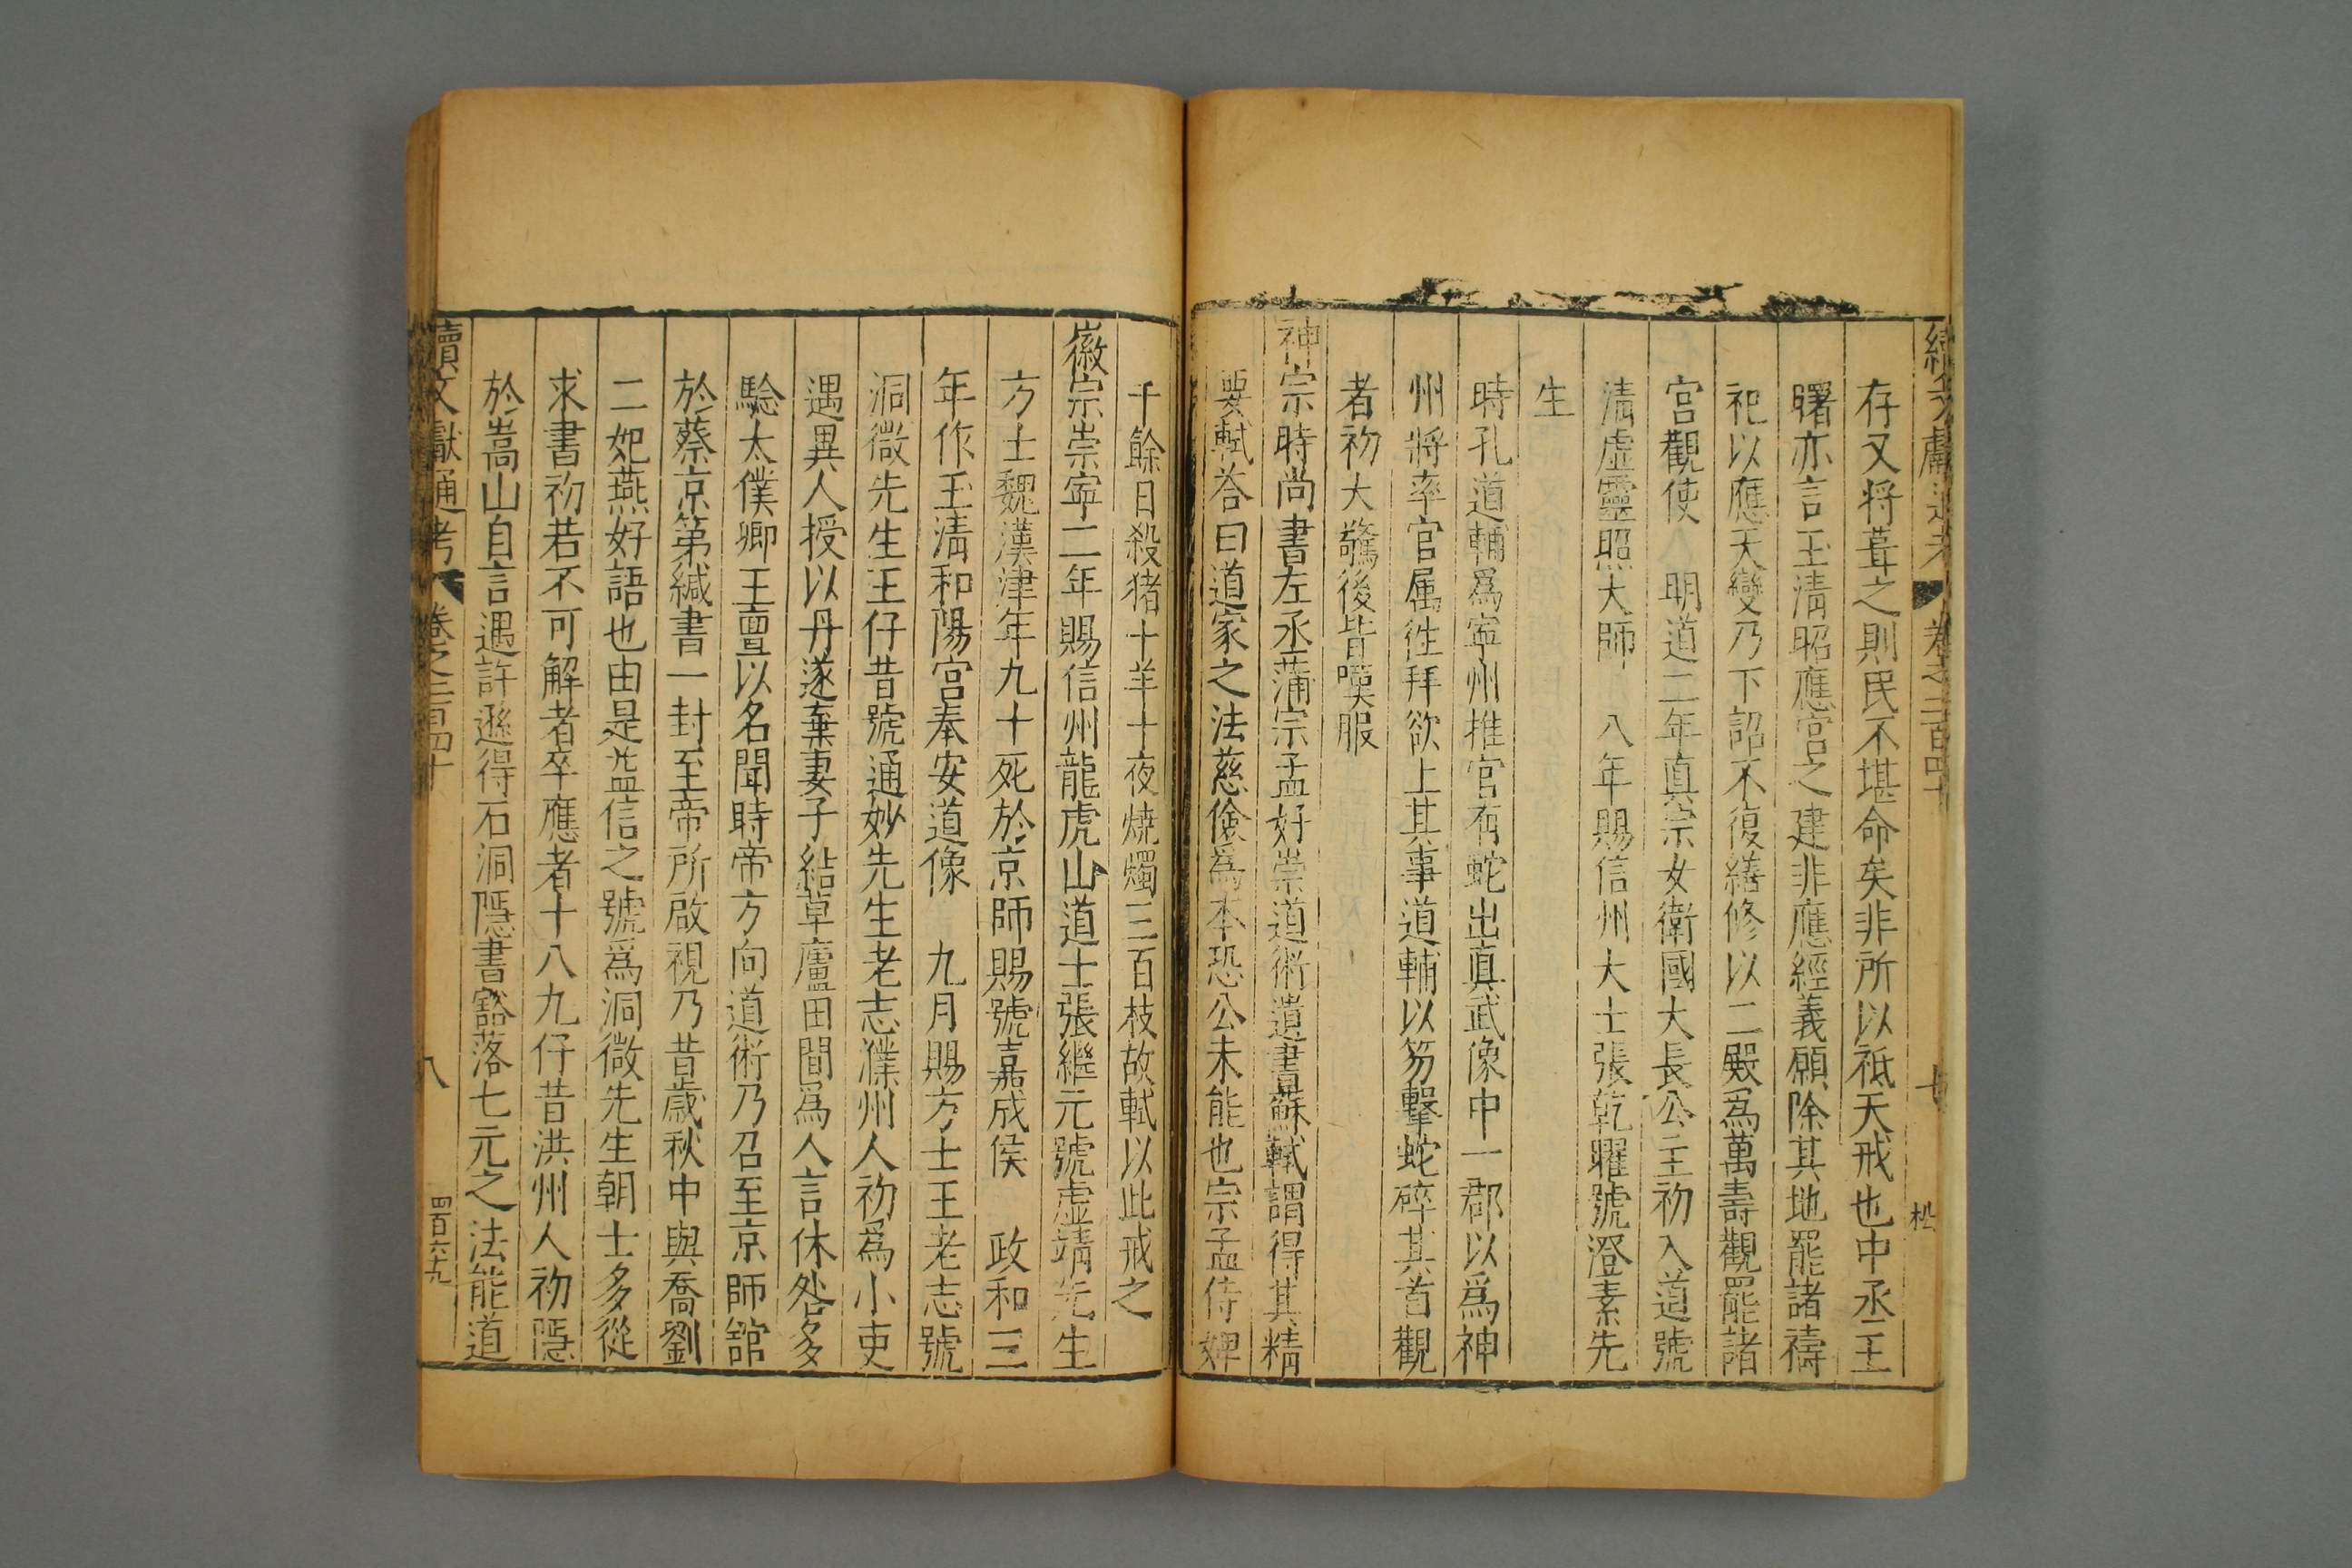 續文獻通考 卷之二百四十 七 松
存又将葺之則民不堪命矣非所以祗天戒也中丞王
曙亦言玉淸昭應宮之建非應經義願除其地罷諸禱
祀以應天變乃下詔不復繕修以二殿爲萬壽觀罷諸
宮觀使 明道二年真宗女衛國大長公主初入道號
淸虚靈照大師 八年賜信州大士張乾曜號澄素先
生
時孔道輔爲寧州推官有蛇出真武像中一郡以爲神
州將率官属徃拜欲上其事道輔以笏擊蛇碎其首觀
者初大驚後皆嘆服
神宗時尚書左丞蒲宗孟好崇道術遺書蘇軾謂得其精
要軾荅曰道家之法慈儉爲本恐公未能也宗孟侍婢
千餘日殺猪十羊十夜燒燭三百枝故軾以此戒之
徽宗崇寧二年賜信州龍虎山道士張繼元號虚靖先生
方士魏漢津年九十死於京師賜號嘉成侯 政和三
年作玉淸和陽宮奉安道像 九月賜方士王老志號
洞微先生王仔昔號通妙先生老志濮州人初爲小吏
遇異人授以丹遂棄妻子結草廬田間爲人言休咎多
驗太僕卿王亶以名聞時帝方向道術乃召至京師舘
於蔡京第緘書一封至帝所啟視乃昔歲秋中與喬劉
二妃燕好語也由是益信之號爲洞微先生朝士多從
求書初若不可解者卒應者十八九仔昔洪州人初隱
於嵩山自言遇許遜得石洞隱書豁落七元之法能道
續文獻通考 卷之二百四十 八 四百六十九